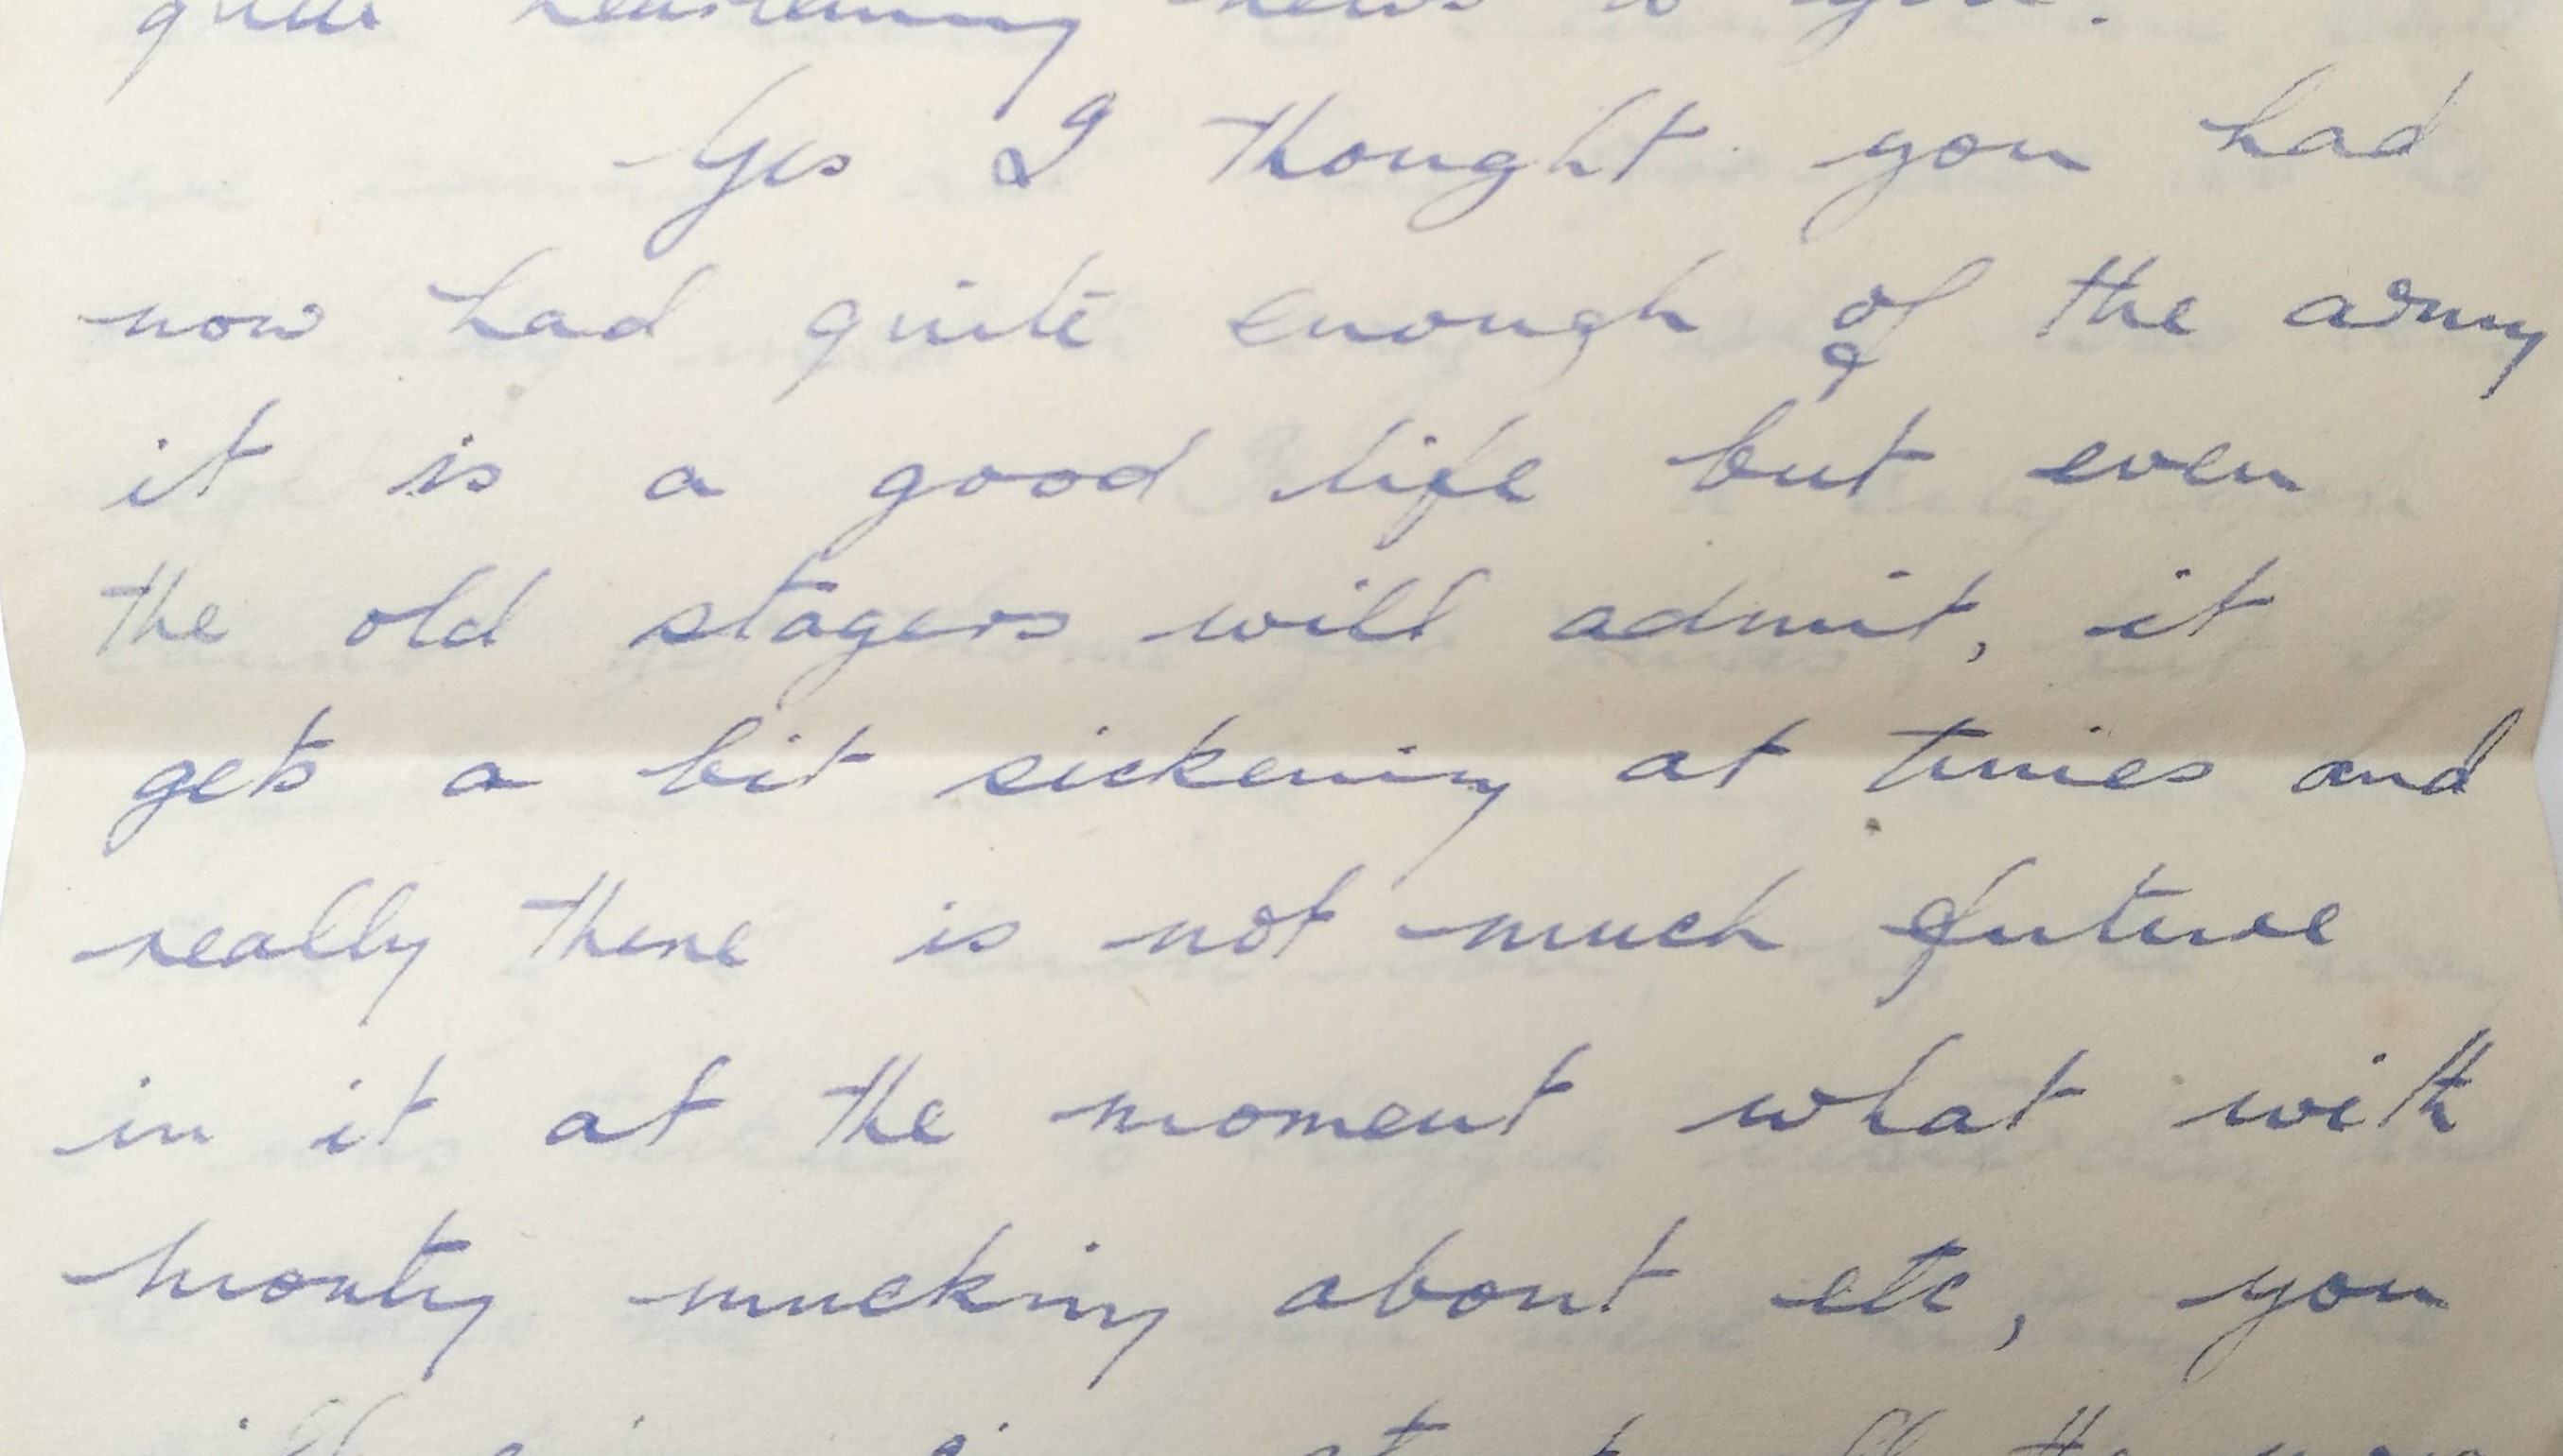 quite heartening news to you.
Yes I thought you had
now had quite enough of the army
it is a good life but even
the old stagers will admit, it
gets a bit sickening at times and
really there is not much future
in it at the moment what with
monty mucking about etc, you